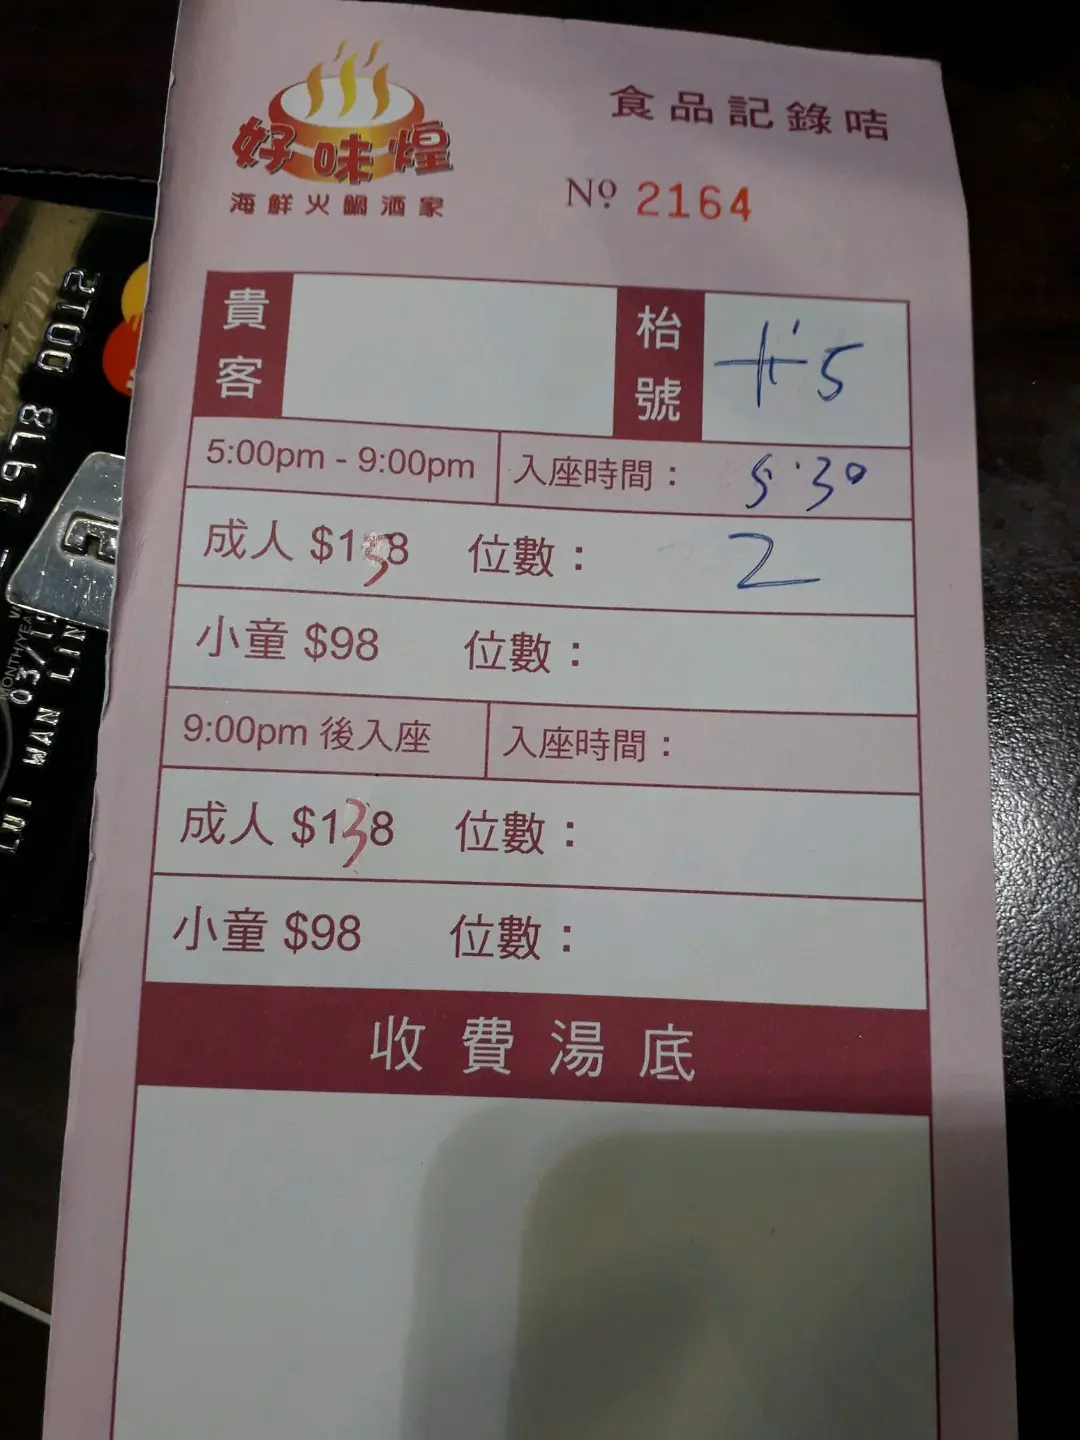 好味煌
海鮮火鍋酒家
食品記錄咭
Nº 2164
貴客
枱號
5:00pm - 9:00pm 入座時間： 5:30
成人 $138 位數： 2
小童 $98 位數：
9:00pm 後入座 入座時間：
成人 $138 位數：
小童 $98 位數：
收費湯底